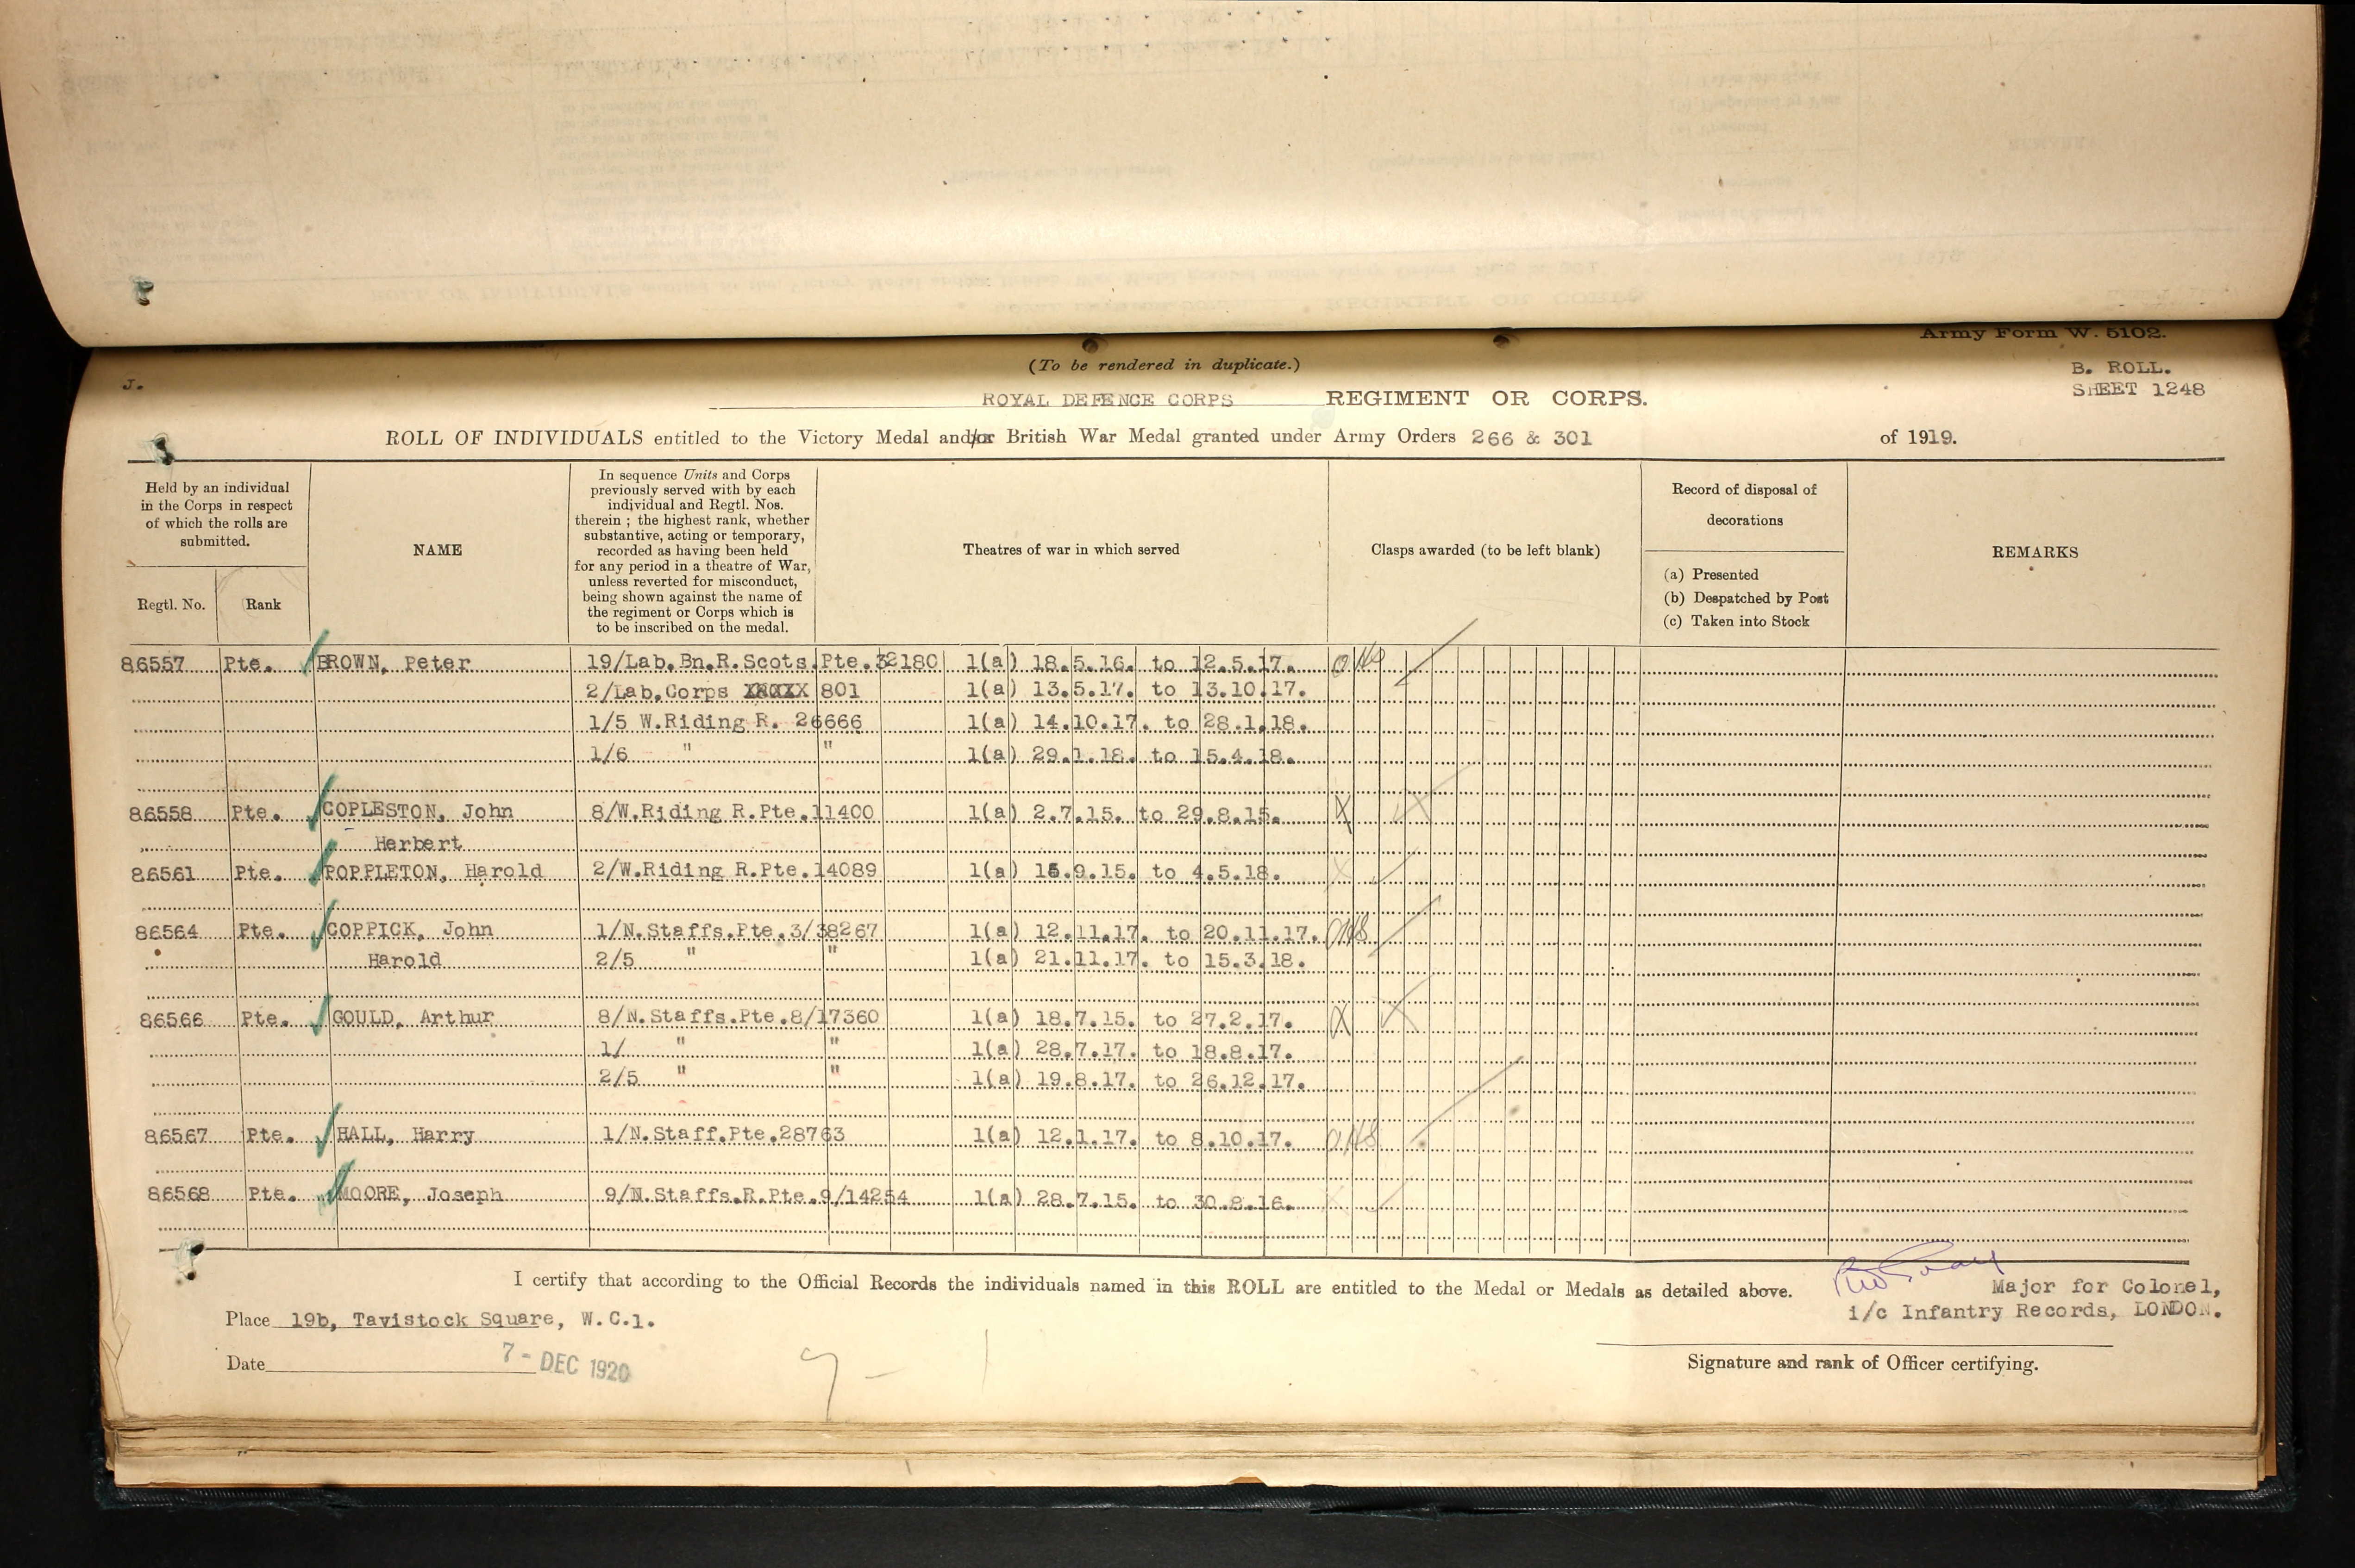 Army Form W. 5102.
(To be rendered in duplicate.)
B. ROLL.
J.
SHEET 1248
ROYAL DEFENCE CORPS REGIMENT OR CORPS.
ROLL OF INDIVIDUALS entitled to the Victory Medal and/or British War Medal granted under Army Orders 266 & 301 of 1919.
Held by an individual
in the Corps in respect
of which the rolls are
submitted.
Regtl. No. Rank
NAME
In sequence Units and Corps
previously served with by each
individual and Regtl. Nos.
therein ; the highest rank, whether
substantive, acting or temporary,
recorded as having been held
for any period in a theatre of War,
unless reverted for misconduct,
being shown against the name of
the regiment or Corps which is
to be inscribed on the medal.
Theatres of war in which served
Clasps awarded (to be left blank)
Record of disposal of
decorations
(a) Presented
(b) Despatched by Post
(c) Taken into Stock
REMARKS
86557 Pte. BROWN, Peter 19/Lab.Bn.R.Scots.Pte.32180 1(a) 18.5.16. to 12.5.17.
2/Lab.Corps 801 1(a) 13.5.17. to 13.10.17.
1/5 W.Riding R. 26666 1(a) 14.10.17. to 28.1.18.
1/6 " " 1(a) 29.1.18. to 15.4.18.
86558 Pte. COPLESTON, John 8/W.Riding R.Pte.11400 1(a) 2.7.15. to 29.8.15. X
Herbert
86561 Pte. POPPLETON, Harold 2/W.Riding R.Pte.14089 1(a) 15.9.15. to 4.5.18.
86564 Pte. COPPICK, John 1/N.Staffs.Pte.3/38267 1(a) 12.11.17. to 20.11.17.
Harold 2/5 " " 1(a) 21.11.17. to 15.3.18.
86566 Pte. GOULD, Arthur 8/N.Staffs.Pte.8/17360 1(a) 18.7.15. to 27.2.17. X
1/ " " 1(a) 28.7.17. to 18.8.17.
2/5 " " 1(a) 19.8.17. to 26.12.17.
86567 Pte. HALL, Harry 1/N.Staff.Pte.28763 1(a) 12.1.17. to 8.10.17.
86568 Pte. MOORE, Joseph 9/N.Staffs.R.Pte.9/14254 1(a) 28.7.15. to 30.8.16.
I certify that according to the Official Records the individuals named in this ROLL are entitled to the Medal or Medals as detailed above.
Major for Colonel,
i/c Infantry Records, LONDON.
Place 19b, Tavistock Square, W.C.1.
Date 7 - DEC 1920
Signature and rank of Officer certifying.